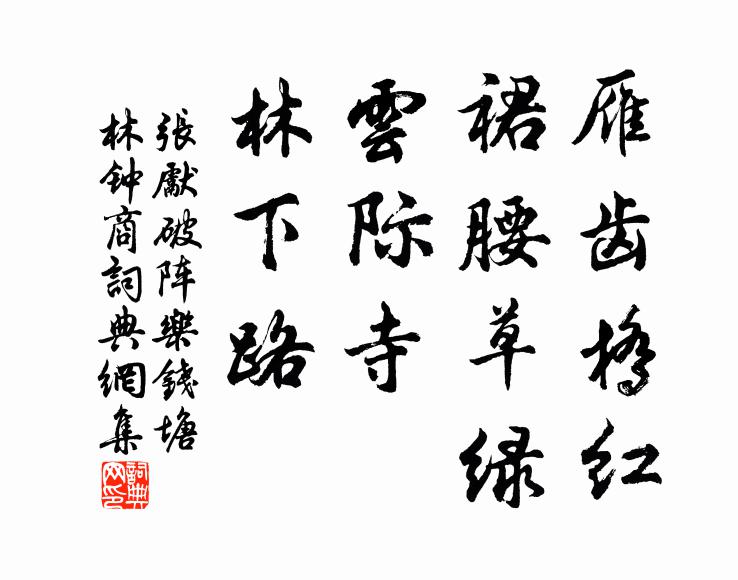 雁齿橋红
裙腰草绿
雲际寺
林下路
張獻破阵樂錢塘
林钟商詞典網集
詞典網印